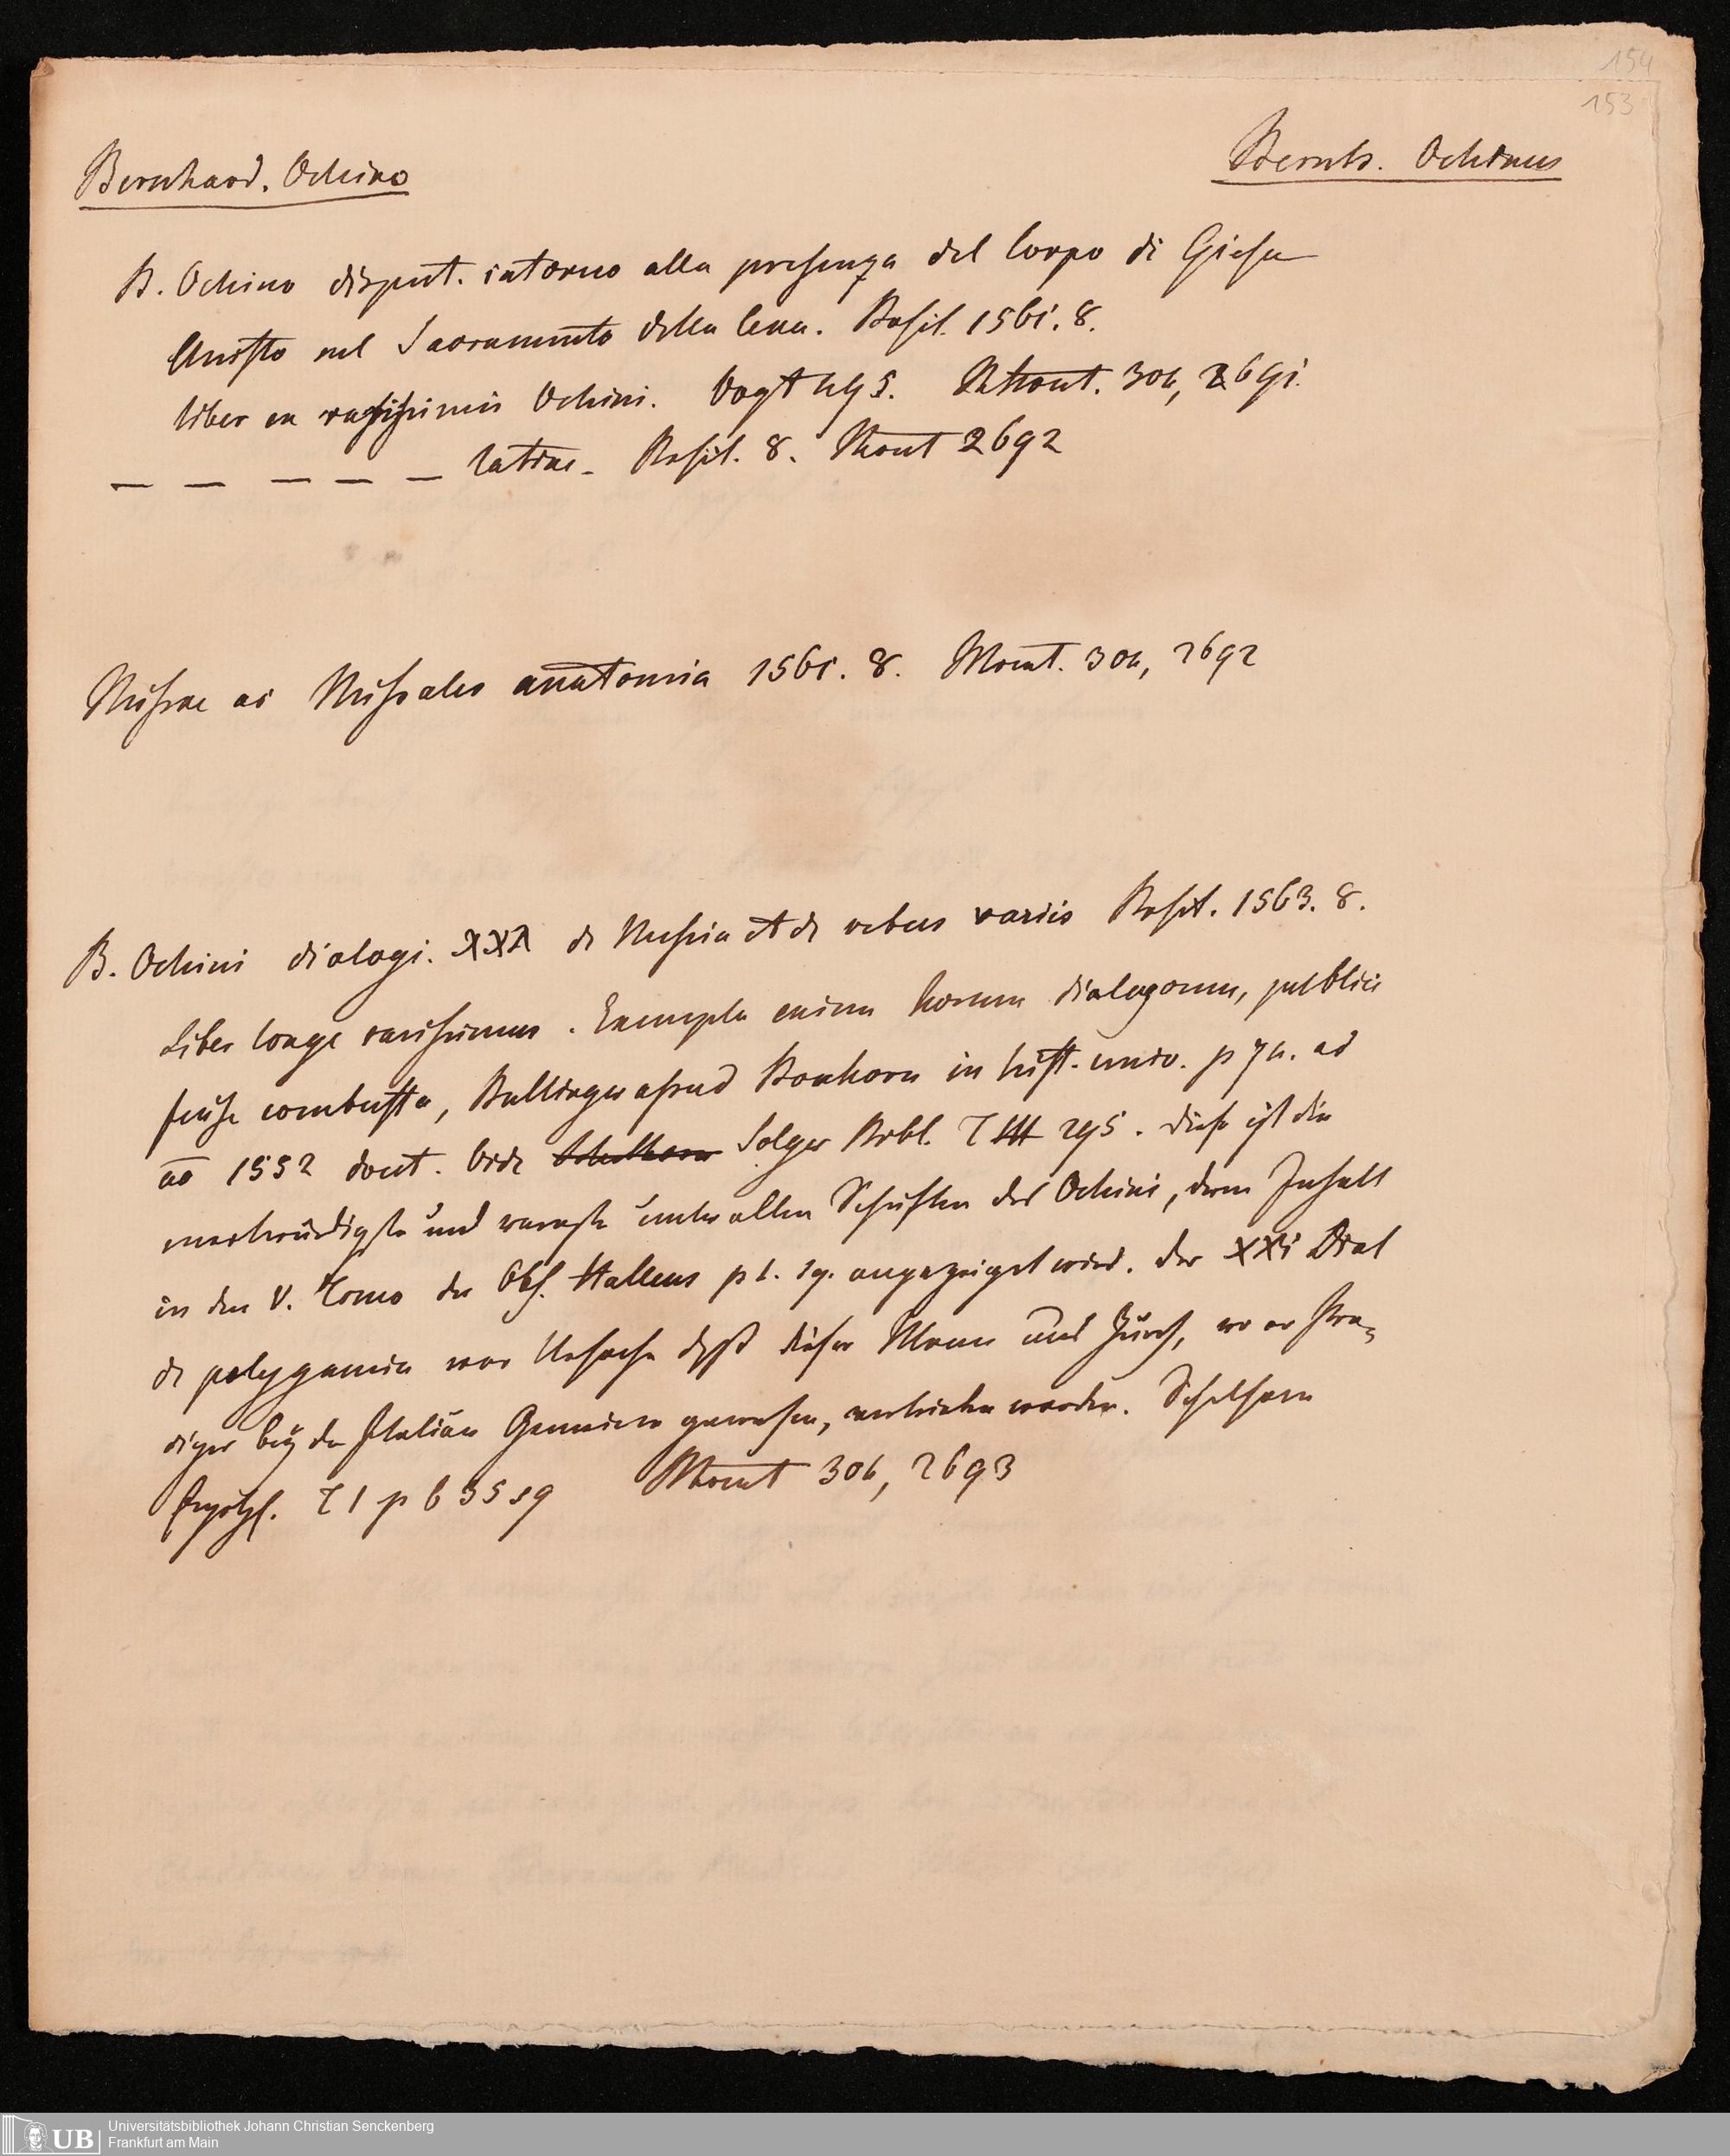 154
153
Bernhard. Ochino
Bernh. Ochinus
B. Ochino disput. intorno alla presenza del Corpo di Giesu
Christo nel Sacramento della Cena. Basil. 1561. 8.
liber ex rarissimis Ochini. Vogt 495. Mont. 306, 2691.
_ _ _ _ _ latine. Basil. 8. Mont 2692
Missae ac Missales anatomia 1561. 8. Mont. 306, 2692
B. Ochini dialogi. XXX de Messia et de rebus variis Basil. 1563. 8.
Liber longe rarissimus. Exempla enim horum dialogorum, publice
fuisse combusta, Bullinger apud Bonhorn in hist. univ. p 74. ad
ao 1552 docet. Vide Schelhorn Solger Bibl. T III 295. Diese ist die
merkwürdigste und rareste unter allen Schriften des Ochini, deren Inhalt
in den V. Tomo der Obs. Hallens p 1. sq. angezeiget wird. Der XXI Dial
de polygamia war Ursache daß dieser Mann aus Zürch, wo er Pre-
diger bey der Italiän Gemeine gewesen, vertrieben worden. Schelhorn
Ergötzl. T I p 635 sq Mont 306, 2693
Universitätsbibliothek Johann Christian Senckenberg
Frankfurt am Main
UB